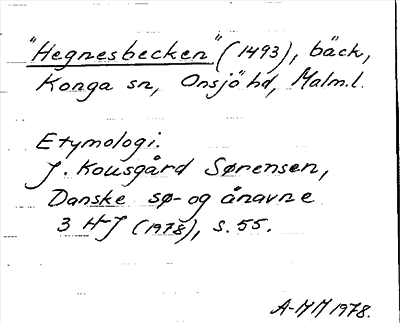 "Hegnesbecken" (1493), bäck,
Konga sn, Onsjö hd, Malm.l.
Etymologi.
J. Kousgård Sørensen,
Danske sø- og ånavne
3 H-J (1978), s. 55.
A-MM 1978.